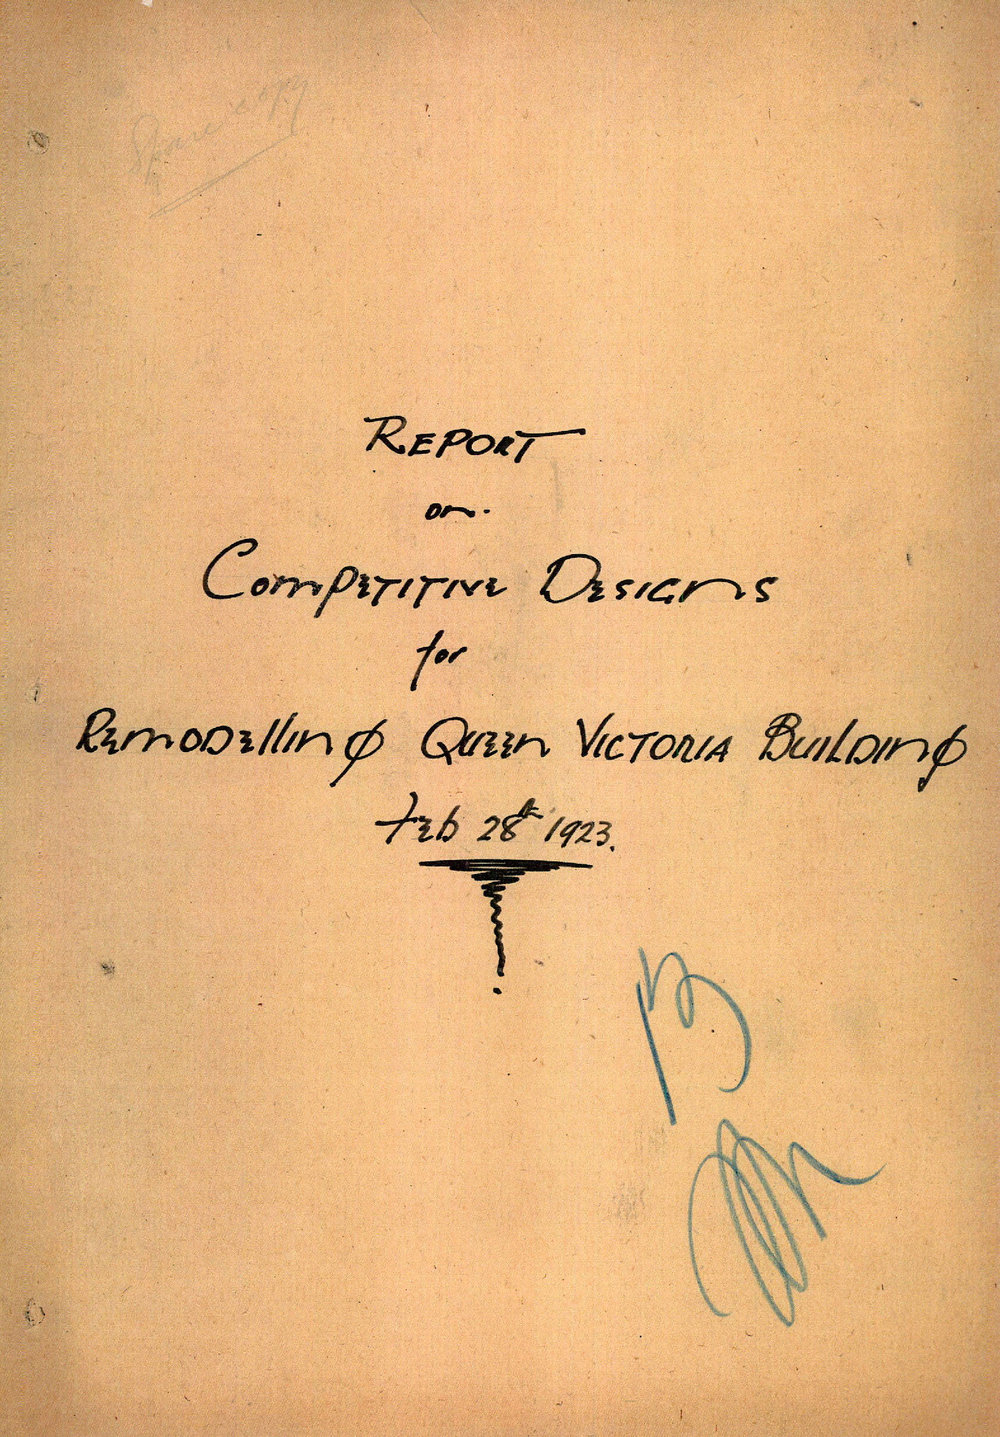 Spare copy
REPORT
on
COMPETITIVE DESIGNS
for
REMODELLING QUEEN VICTORIA BUILDING
Feb 28th 1923.